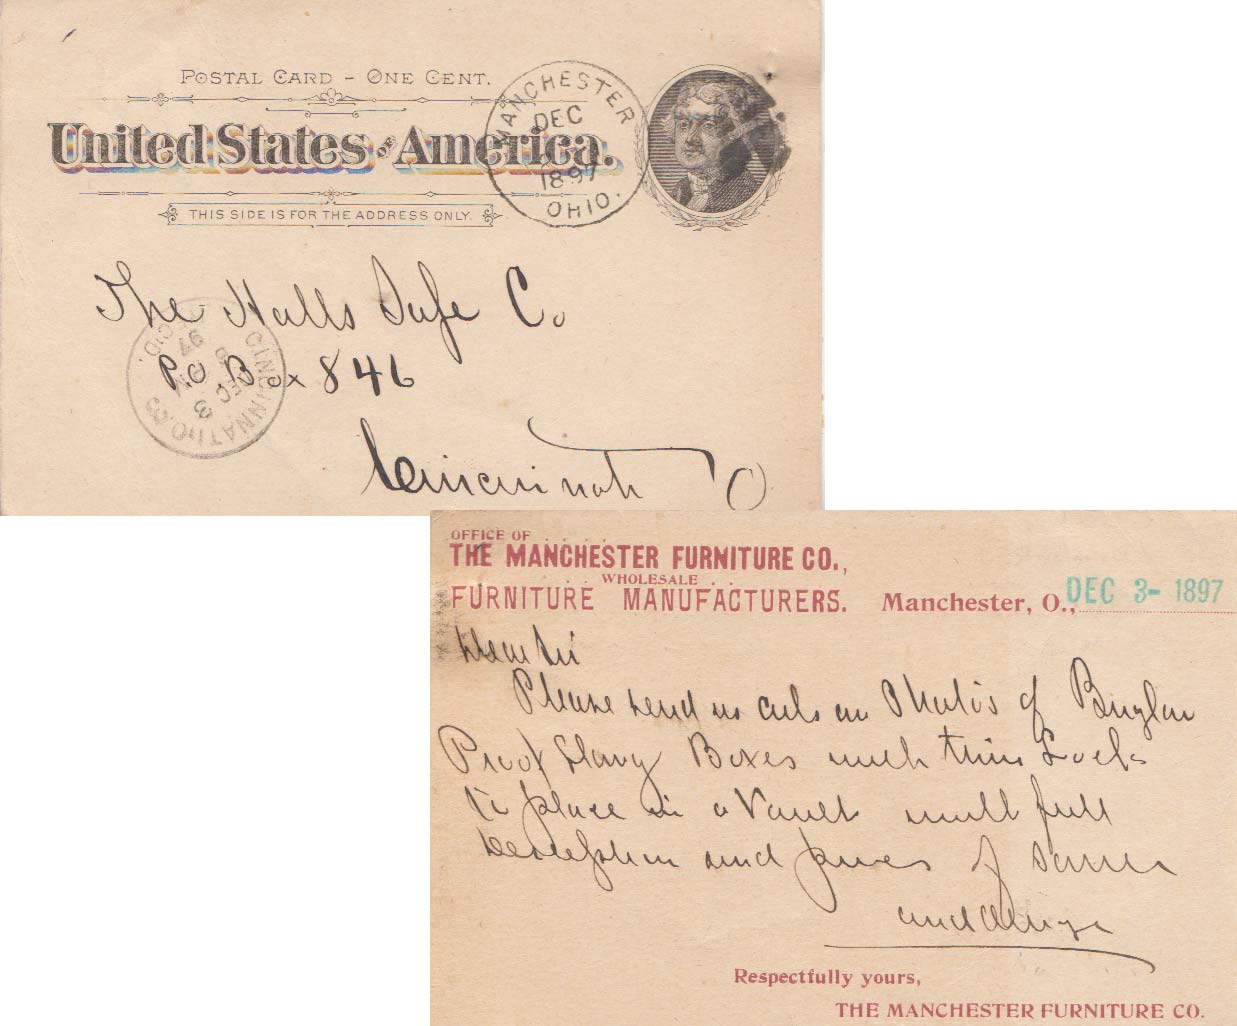 POSTAL CARD - ONE CENT.
United States OF America.
THIS SIDE IS FOR THE ADDRESS ONLY.
MANCHESTER
DEC
1897
OHIO.
The Halls Safe Co
P.O Box 846
Cincinnati O
CINCINNATI, O.
DEC 3
97
OFFICE OF . . . .
THE MANCHESTER FURNITURE CO.,
. . . WHOLESALE . .
FURNITURE MANUFACTURERS.
Manchester, O., DEC 3- 1897
Dear Sir
Please send us cuts or Photo's of Burglar
Proof Boxes with time Locks
to place in a Vault with full
description and prices of same
and oblige
Respectfully yours,
THE MANCHESTER FURNITURE CO.